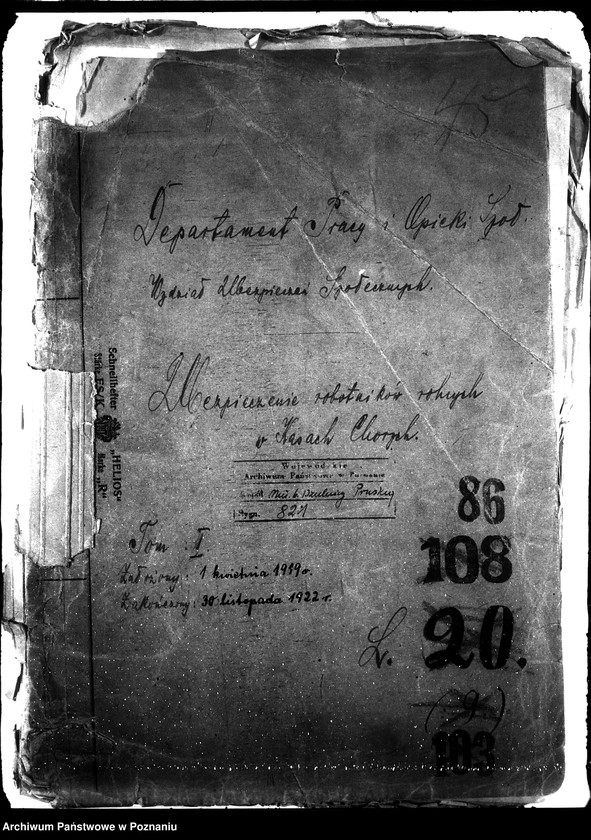 45
Departament Pracy i Opieki Społ.
Wydział Ubezpieczeń Społecznych.
Ubezpieczenie robotników rolnych
w Kasach Chorych.
Schnellhefter
"HELIOS"
Marke "R"
Wojewódzkie
Archiwum Państwowe w Poznaniu
Min. b. Dzielnicy Pruskiej
Sygn. 821
Tom I
Założony: 1 kwietnia 1919 r.
Zakończony: 30 listopada 1922 r.
86
108
L. 20.
(9)
103
Archiwum Państwowe w Poznaniu